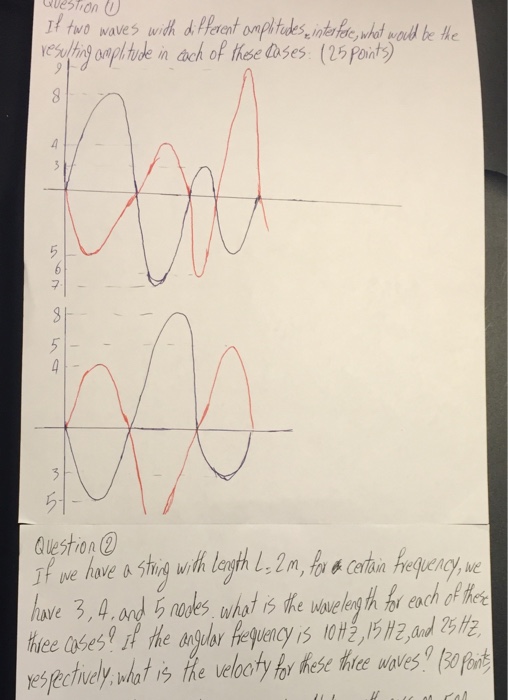 Question ①
If two waves with different amplitudes interfere, what would be the
resulting amplitude in each of these cases. (25 points)
9
8
4
3
5
6
7
8
5
4
3
5
Question ②
If we have a string with length L = 2m, for a certain frequency, we
have 3, 4, and 5 nodes, what is the wavelength for each of these
three cases? If the angular frequency is 10 HZ, 15 HZ, and 25 HZ,
respectively, what is the velocity for these three waves? (30 points